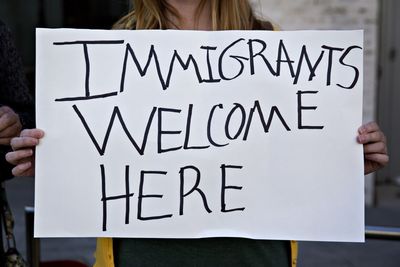 IMMIGRANTS
WELCOME HERE
HERE